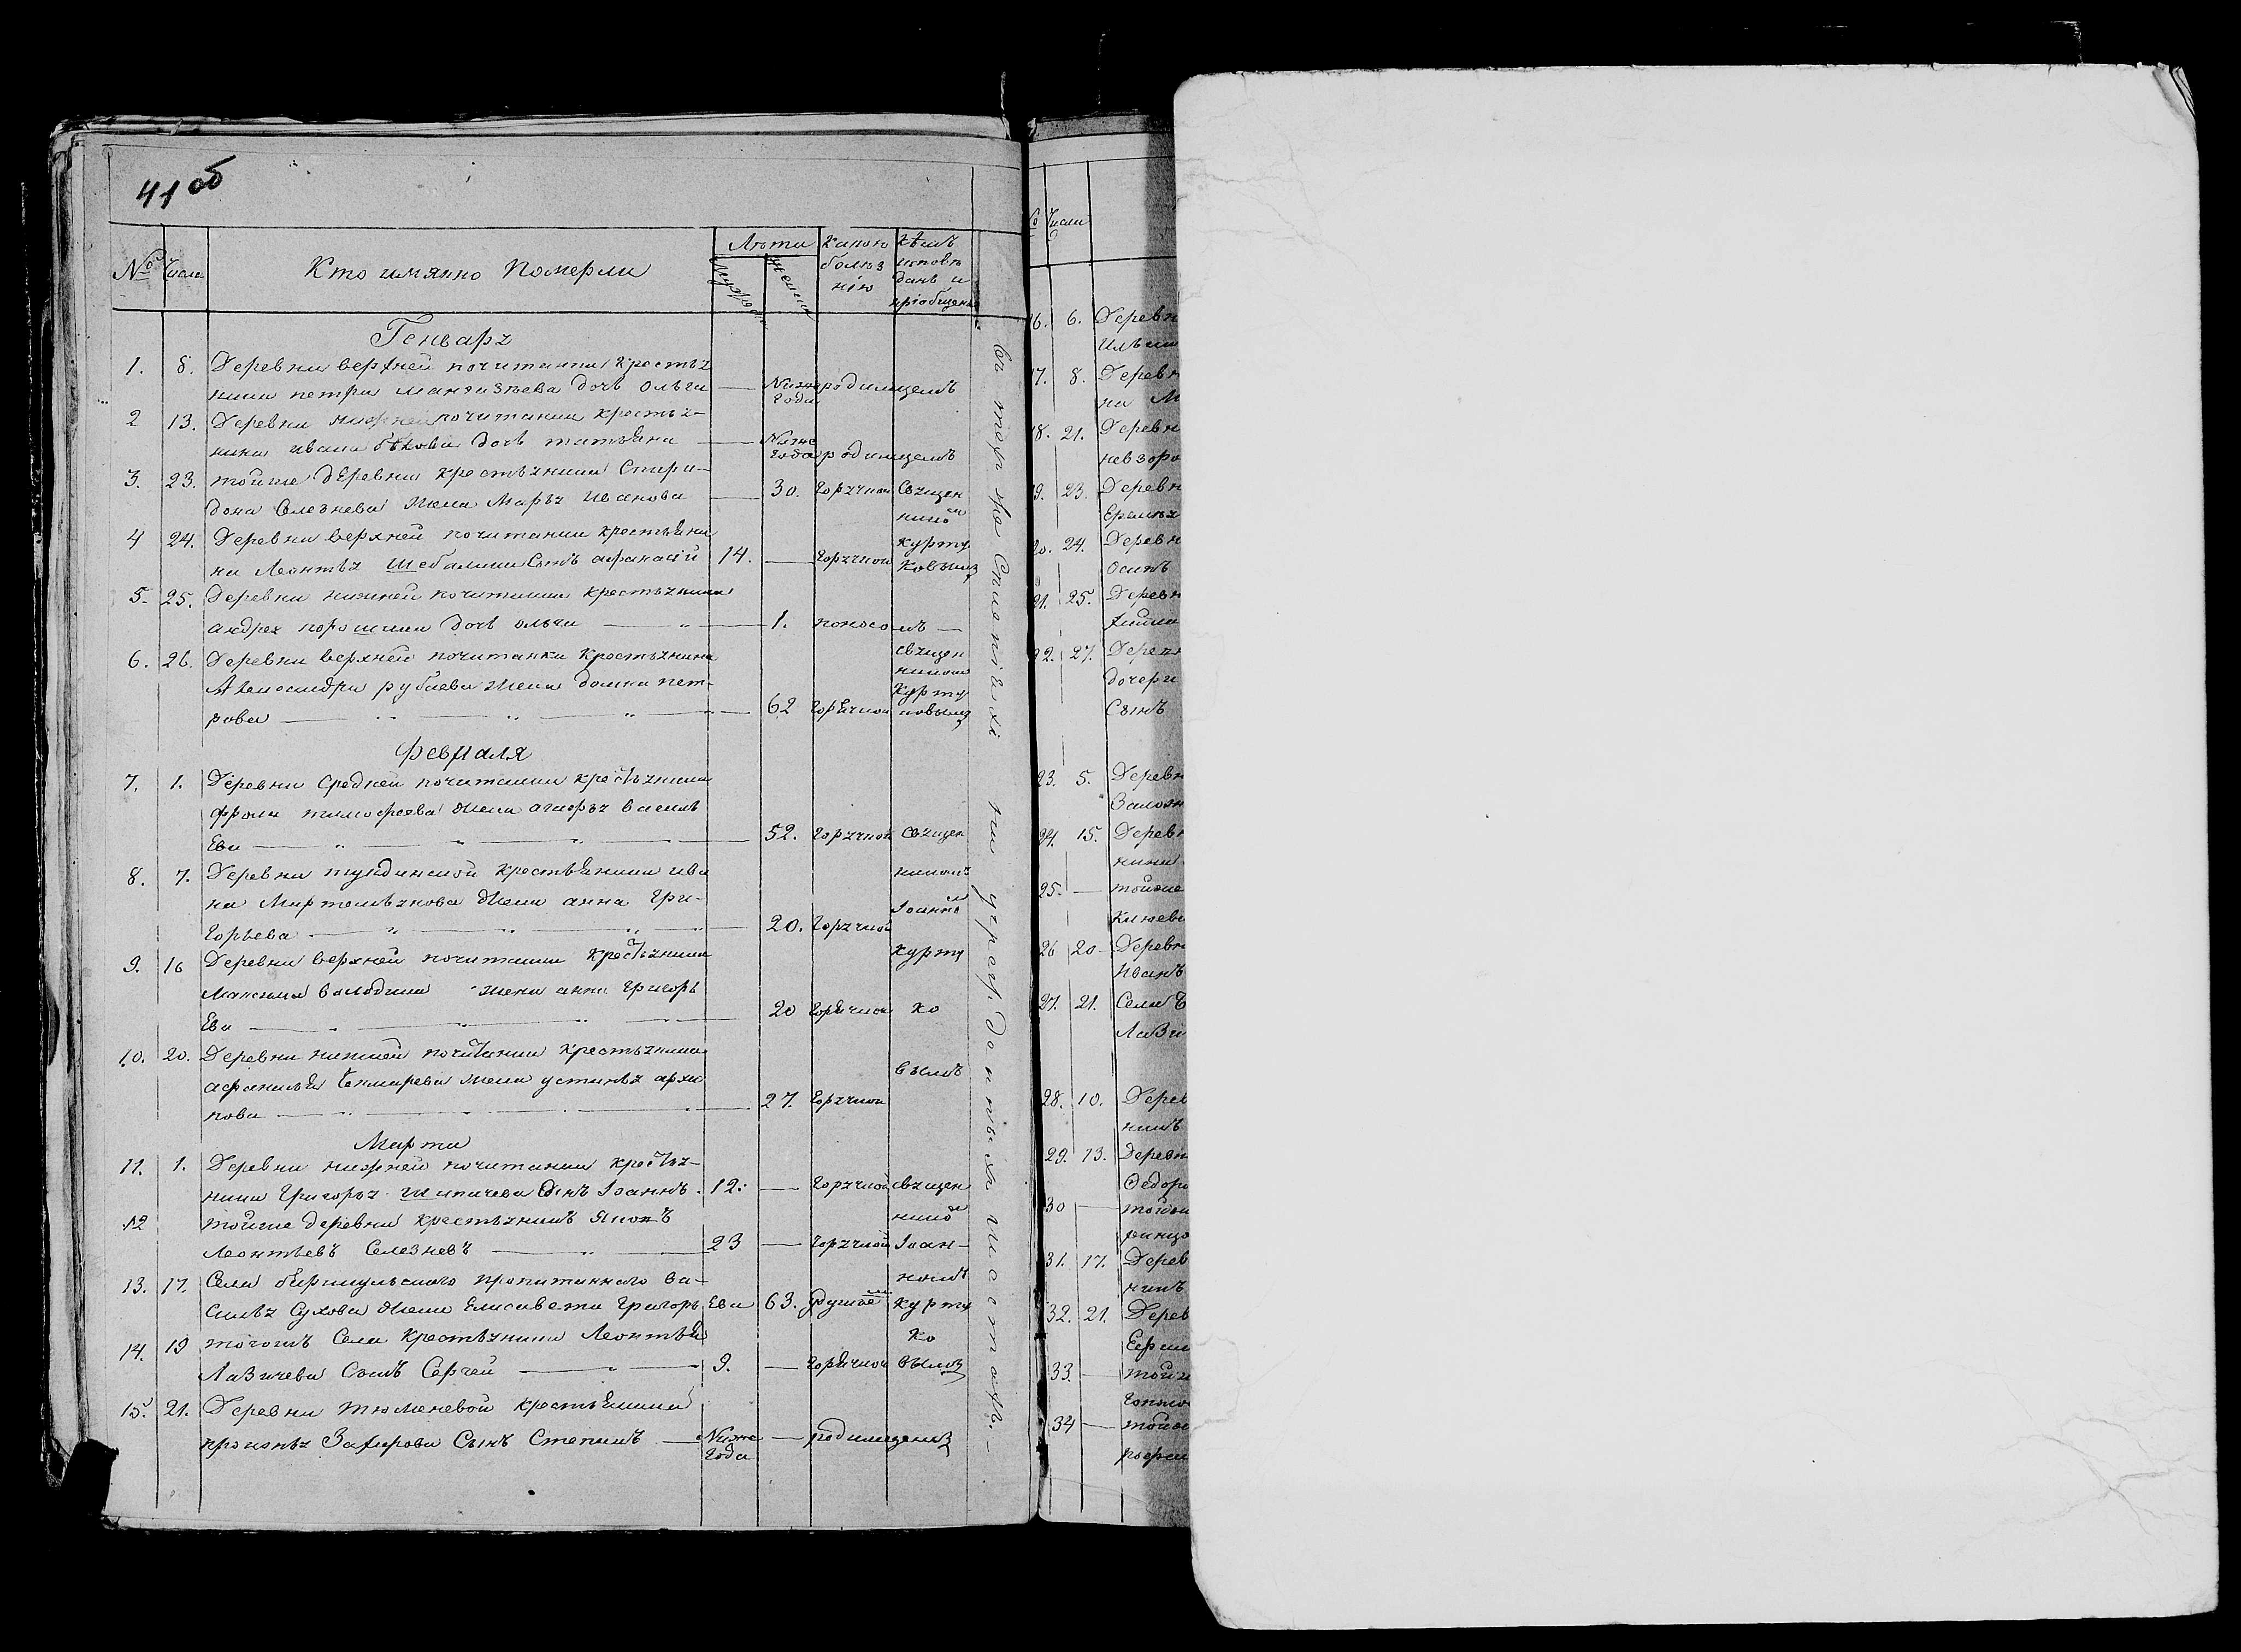 41 об
№ Числа Кто имянно померли Лѣта Какою Кѣмъ
мужеск женск болѣз исповѣ
нію данъ и
пріобщенъ
Генварь
1. 8. Деревни верхней почитанки крестья
нина петра дочь ольга — Ниже родимцемъ
года
2 13. Деревни нижней почитанки крестья-
нина ивана бѣкова дочь татьяна — Ниже
года родимцемъ
3. 23. тойже дЕревни крестьянина Спири-
дона Селезнева жена Марья Иванова — 30. горячкой Священ
никомъ
4 24. Деревни верхней почитанки крестьяни
на Леонтья Шебалина Сынъ афанасій 14. — горячкой курту
ковымъ
5. 25. Деревни нижней почитанки крестьянина
андрея порошина дочь ольга — 1. поносомъ —
6. 26. Деревни верхней почитанки крестьянина
Александра рубцева жена домна пет-
рова — 62 горячкой
священ
никомъ
курту
ковымъ
Февраля
7. 1. Деревни Средней почитанки крестьянина
фрола тимофеева жена агафья василь
Ева — 52. горячкой священ
8. 7. Деревни тундинской крестьянина ива
на Мартемьянова жена анна Гри-
горьева — 20. горячкой
никомъ
Іоанномъ
9. 16 Деревни верхней почитанки крестьянина
Максима володина жена анна григорь
Ева — 20 горячкой
курту
ко
10. 20. Деревни нижней почитанки крестьянина
афанасья Чекмарева жена устинья архи
пова — 27. горячкой
вымъ
Марта
11. 1. Деревни нижней почитанки крестья-
нина Григорья Шипачева Сынъ Іоаннъ. 12: — горячкой священ
никомъ
12 тойже деревни крестьянинъ
Леонтьевъ Селезневъ — 23 — горячкой Іоан-
номъ
13. 17. Села пропитаннаго ва-
силья Сухова жена Елисавета Григорь Ева 63. курту
14. 19 тогожъ Села крестьянина Леонтья
Лазичева Сынъ Сергей — 9. — горячкой
ко
вымъ
15. 21. Деревни тюменевой крестьянина
прокопья Захарова Сынъ Степанъ — Ниже — родимцемъ
года
№ Числа
16. 6. Деревн
17. 8. Деревн
на М
18. 21. Деревн
невзоро
19. 23. Деревн
20. 24. Деревн
осипъ
21. 25. Деревн
22. 27. Деревн
дочери
Сынъ
23. 5. Деревн
24. 15. Деревн
нина
25. — тойже
26 20 Деревн
Иванъ
27. 21. Села
Лази
28. 10. Дерев
нинъ
29. 13. Деревн
Ѳедоро
30 —
31. 17. Дерев
нинъ
32. 21. Дерев
33. —
34 —